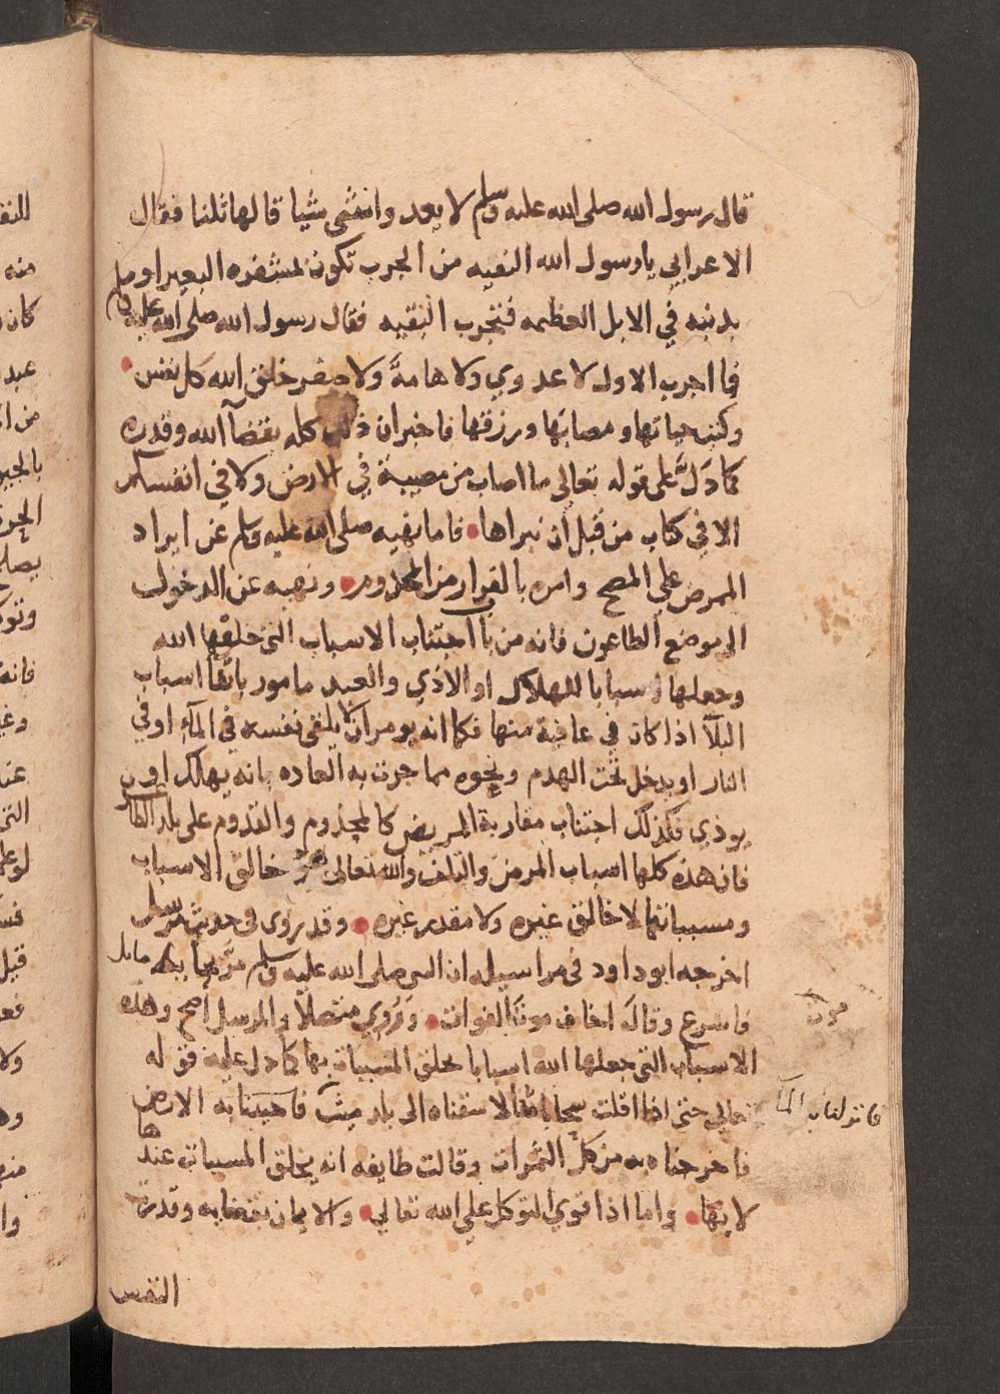 قال رسول الله صلى الله عليه وسلم لا يعد وانشى شيا قالها ثلثا فقال
الاعرابي يا رسول الله النقيه من الجرب تكون بمشفره البعير او
بدنبه في الابل العظيمه فتجرب النقيه فقال رسول الله صلى الله عليه وسلم
فما اجرب الاول لا عدوي ولا هامة ولا صفر خلق الله كل نفس
وكتب حياتها ومصابها ورزقها فاخبر ان ذلك كله بقضآ الله وقدره
كما دل على قوله تعالى ما اصاب من مصيبة في الارض ولا في انفسكم
الا في كتاب من قبل ان نبراها فاما نهيه صلى الله عليه وسلم عن ايراد
الممرض علي المصح وامره بالفرار من المجذوم ونهيه عن الدخول
الى موضع الطاعون فانه من باب اجتناب الاسباب التى خلقها الله
وجعلها اسبابا للهلاك او الاذي والعبد مامور باتقا اسباب
البلآ اذا كان في عافية منها فكما انه يومر ان لا يلقي نفسه في المآء او في
النار او يدخل تحت الهدم ونحوه مما جرت به العاده بانه يهلك او
يوذي فكذلك اجتناب مقاربة المريض كالمجذوم والقدوم على بلد الطاعون
فان هذه كلها اسباب المرض والتلف والله تعالى هو خالق الاسباب
ومسبباتها لا خالق غيره ولا مقدر غيره وقد روى في حديث مرسل
اخرجه ابو داود في مراسيله ان النبى صلى الله عليه وسلم مر بحايط مايل
فاسرع وقال اخاف موت الفوات وروي متصلا والمرسل اصح وهذه
الاسباب التى جعلها الله اسبابا يخلق المسببات بها كما دل عليه قوله
تعالى حتى اذا اقلت سحابا ثقالا سقناه الى بلد ميت فاحيينا به الارض
فاخرجنا به من كل الثمرات وقالت طايفه انه يخلق المسببات عندها
لا بها واما اذا قوي التوكل علي الله تعالي والايمان بقضايه وقدره
النفس
موت
فانزلنا به الما